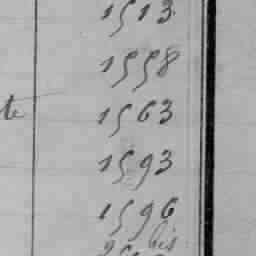 1513
1558
te 1563
1593
1596
bis